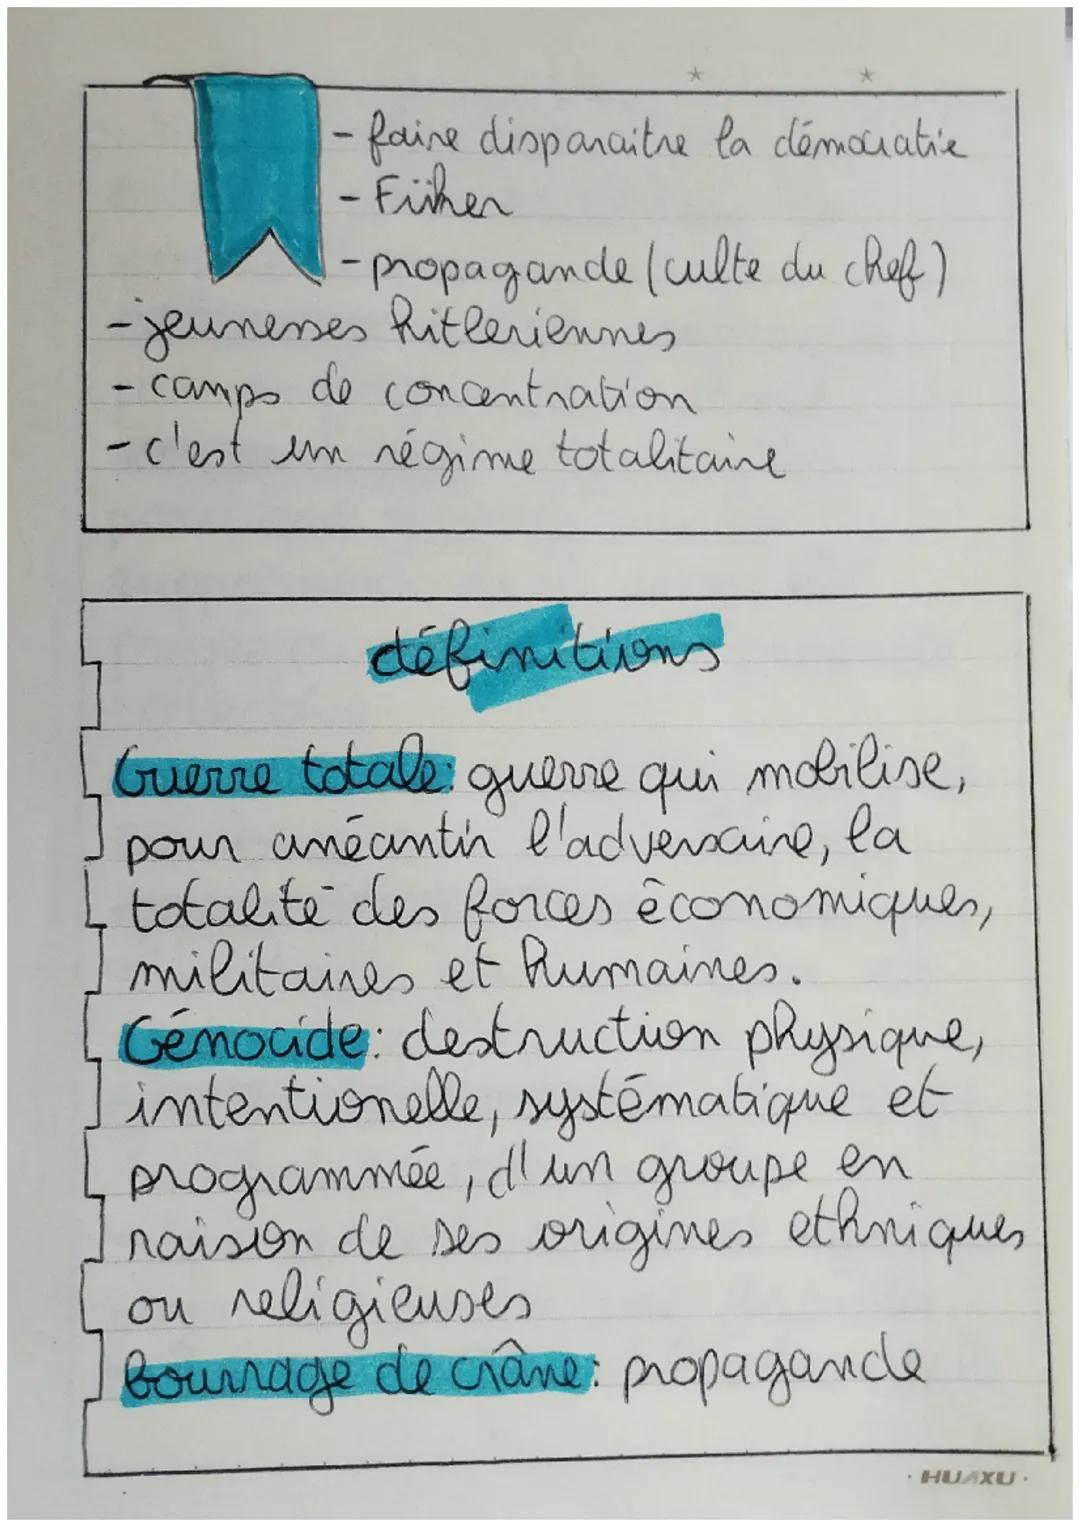 - faire disparaitre la démocratie
- Füher
- propagande (culte du chef)
- jeunesses hitleriennes
- camps de concentration
- c'est un régime totalitaire
définitions
Guerre totale: guerre qui mobilise,
pour anéantir l'adversaire, la
totalité des forces économiques,
militaires et humaines.
Génocide: destruction physique,
intentionelle, systématique et
programmée, d'un groupe en
raison de ses origines ethniques
ou religieuses
Bourrage de crâne: propagande
HUAXU